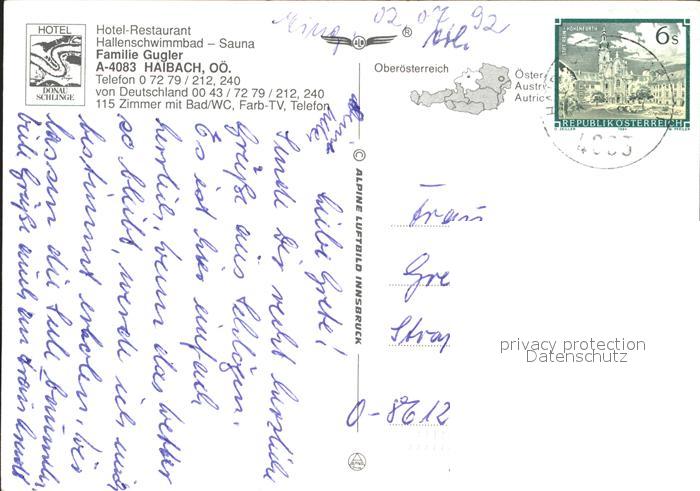 HOTEL
DONAU
SCHLINGE
Hotel-Restaurant
Hallenschwimmbad – Sauna
Familie Gugler
A-4083 HAIBACH, OÖ.
Telefon 0 72 79 / 212, 240
von Deutschland 00 43 / 72 79 / 212, 240
115 Zimmer mit Bad/WC, Farb-TV, Telefon
02.07.92
®
Oberösterreich
Öster
Austr
Autric
STIFT REIN-HOHENFURTH
6s
REPUBLIK ÖSTERREICH
4083
© ALPINE LUFTBILD INNSBRUCK
Liebe Grete!
Sende Dir recht herzliche
Grüße aus Schlögen.
Es ist hier einfach
herrlich, wenn das Wetter
so bleibt, werde ich mich
bestimmt erholen. Wir
lassen die Seele baumeln.
Viele Grüße auch an
Frau
Gre
Straß
O-8612
privacy protection
Datenschutz